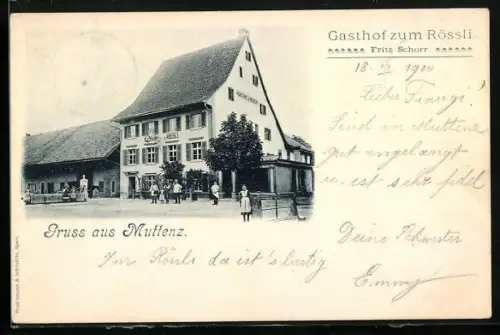 Gasthof zum Rössli
Fritz Schorr
18. VI 1900
Liebe Frangi!
Sind in Muttenz
gut angelangt
u. ist sehr fidel
Deine Schwester
Emmy
Gruss aus Muttenz.
Im Rösli da ist's lustig